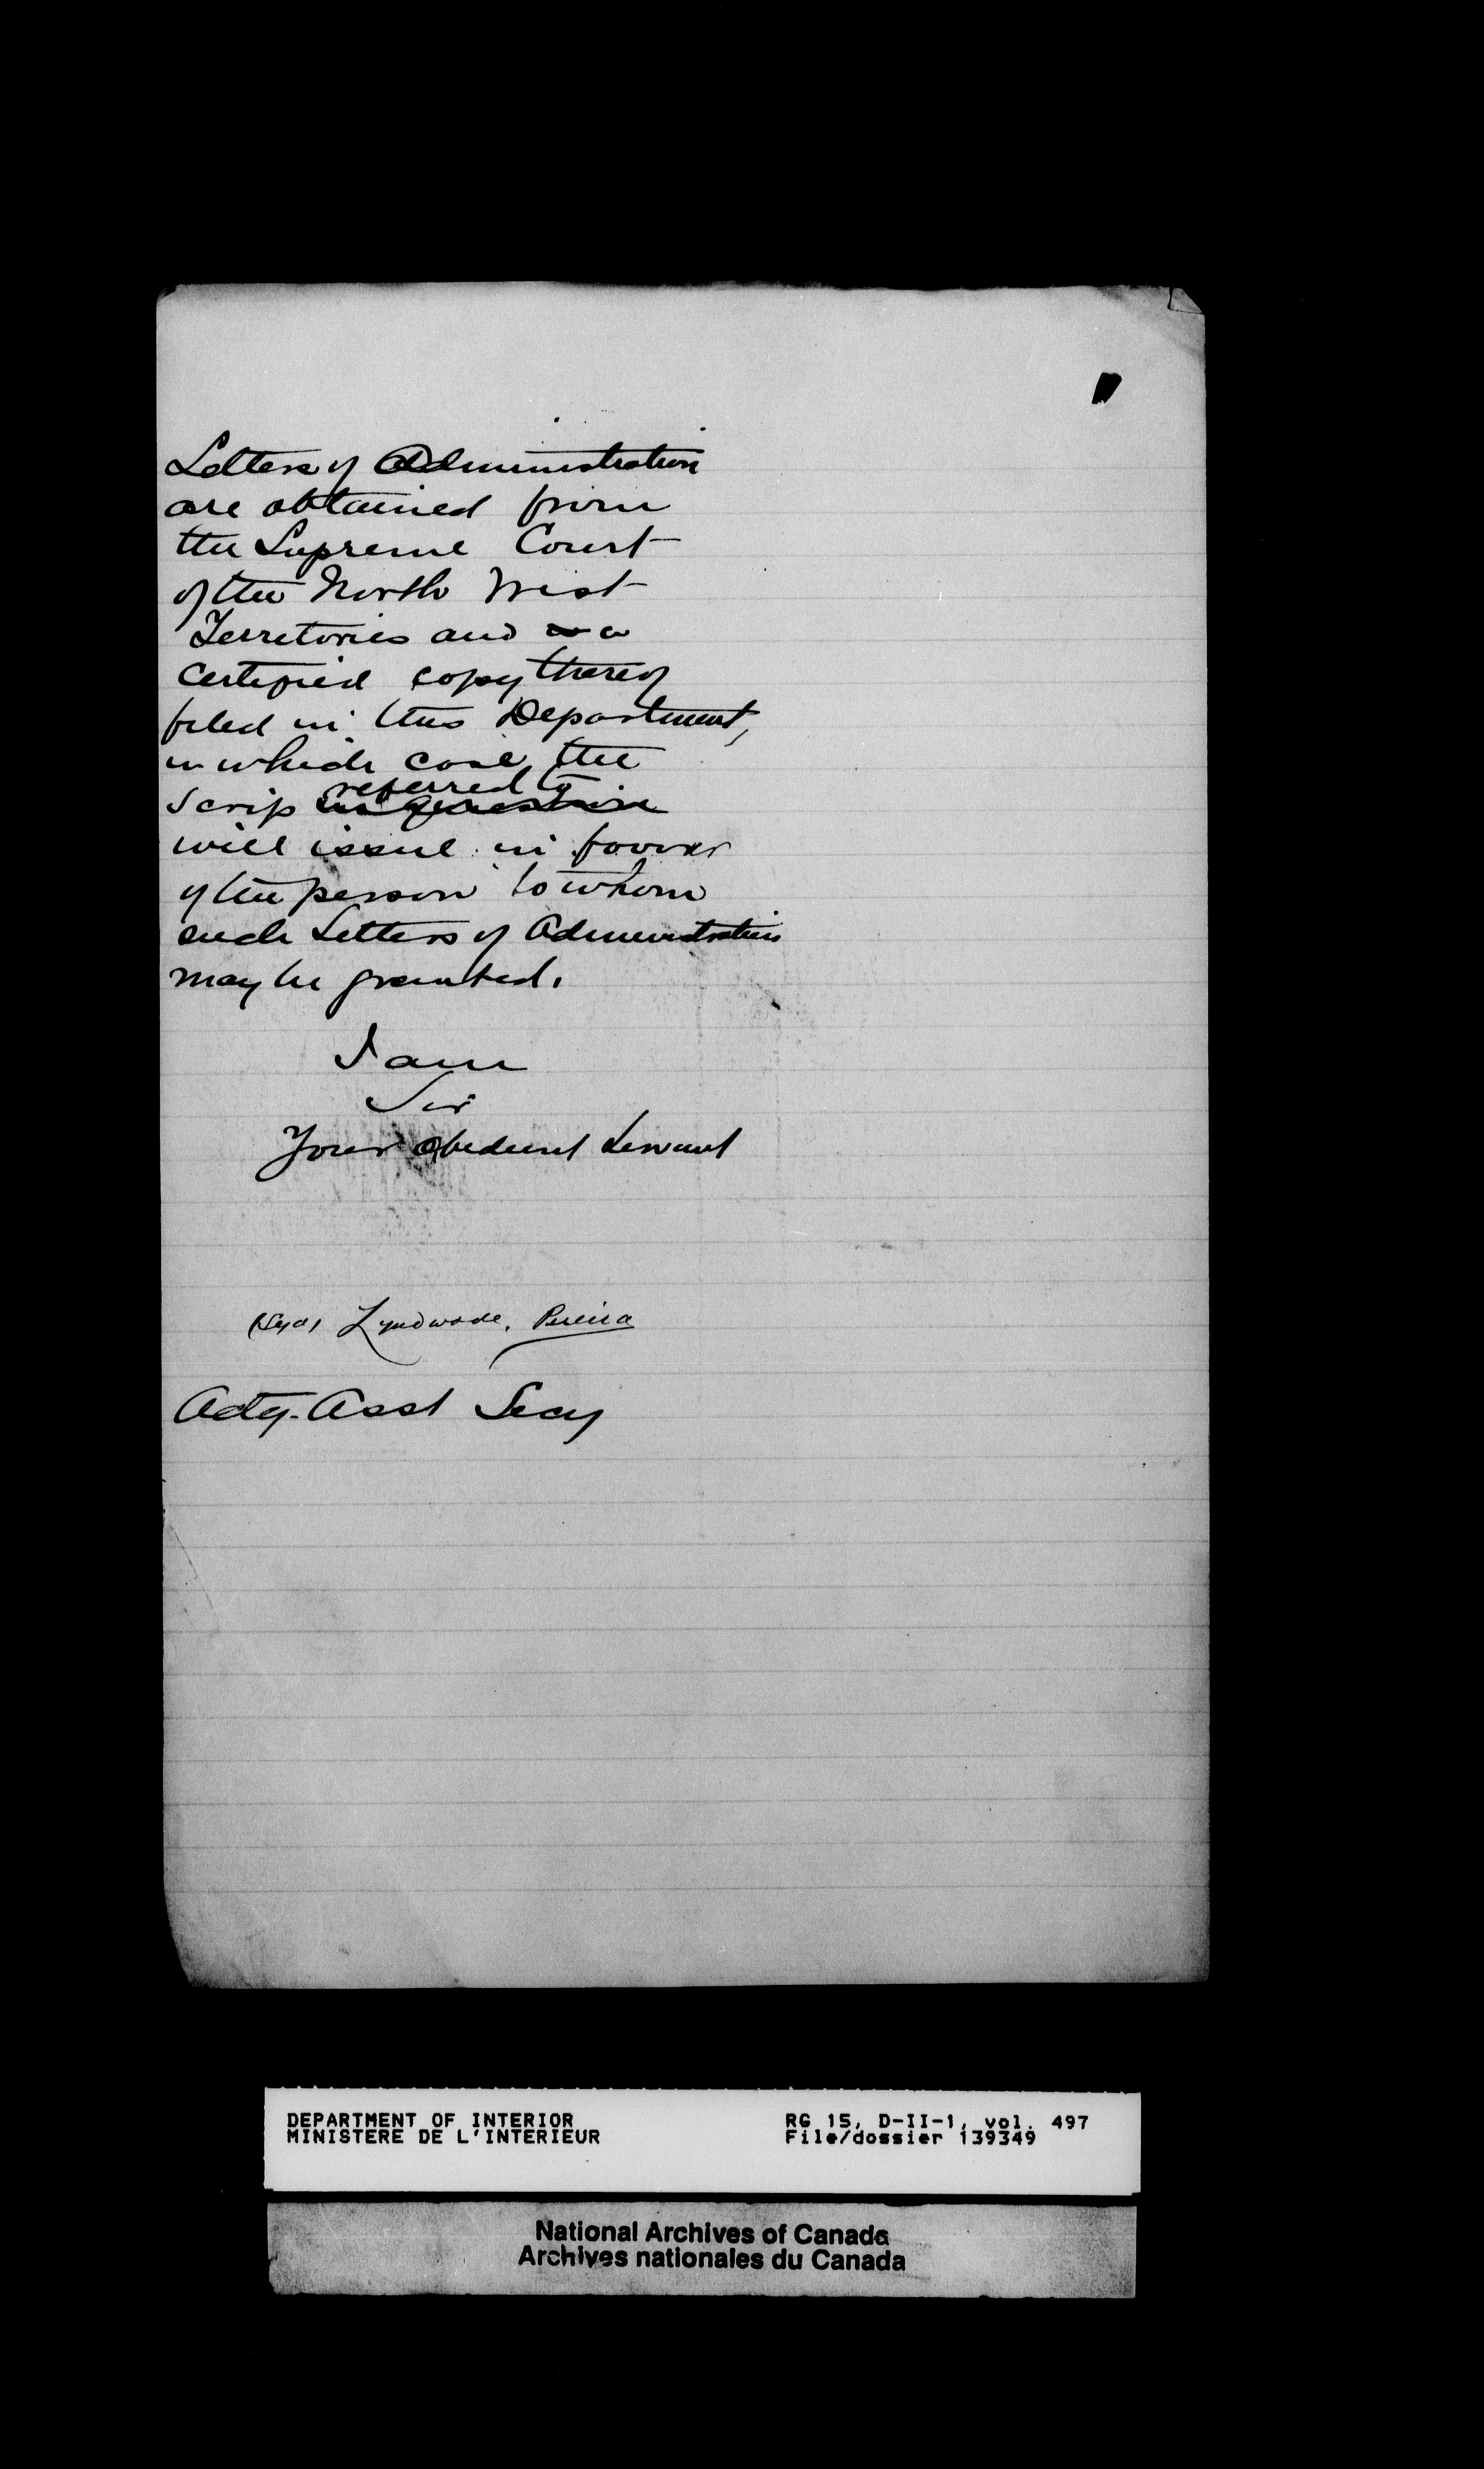 Letters of Administration
are obtained from
the Supreme Court
of the North West
Territories and a
certified copy thereof
filed in this Department,
in which case the
referred to
scrip in question
will issue in favour
of the person to whom
such Letters of Administration
may be granted.
I am
Sir
Your obedient servant
(Sgd) Lyndwode. Pereira
Actg. Asst Secy
DEPARTMENT OF INTERIOR
MINISTERE DE L'INTERIEUR
RG 15, D-II-1, vol. 497
File/dossier 139349
National Archives of Canada
Archives nationales du Canada